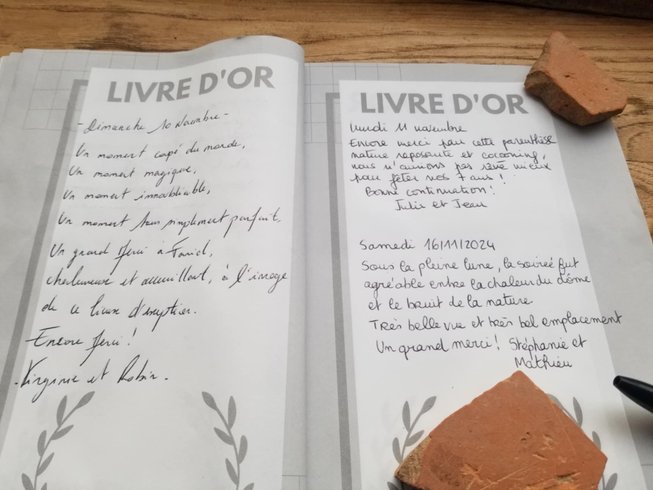 LIVRE D'OR
- Dimanche 10 Novembre -
Un moment coupé du monde,
Un moment magique,
Un moment innoubliable,
Un moment tous simplement parfait,
Un grand Merci à Farid,
chaleureux et accueillant, à l'image
de ce lieux d'exeption.
Encore Merci !
- Virginie et Robin.
LIVRE D'OR
Lundi 11 novembre
Encore merci pour cette parenthèse
nature reposante et cocooning,
nous n'aurions pas rêvé mieux
pour fêter nos 7 ans !
Bonne continuation !
Julie et Jean
Samedi 16/11/2024
Sous la pleine lune, la soirée fut
agréable entre la chaleur du dôme
et le bruit de la nature
Très belle vue et très bel emplacement
Un grand merci ! Stéphanie et
Mathieu